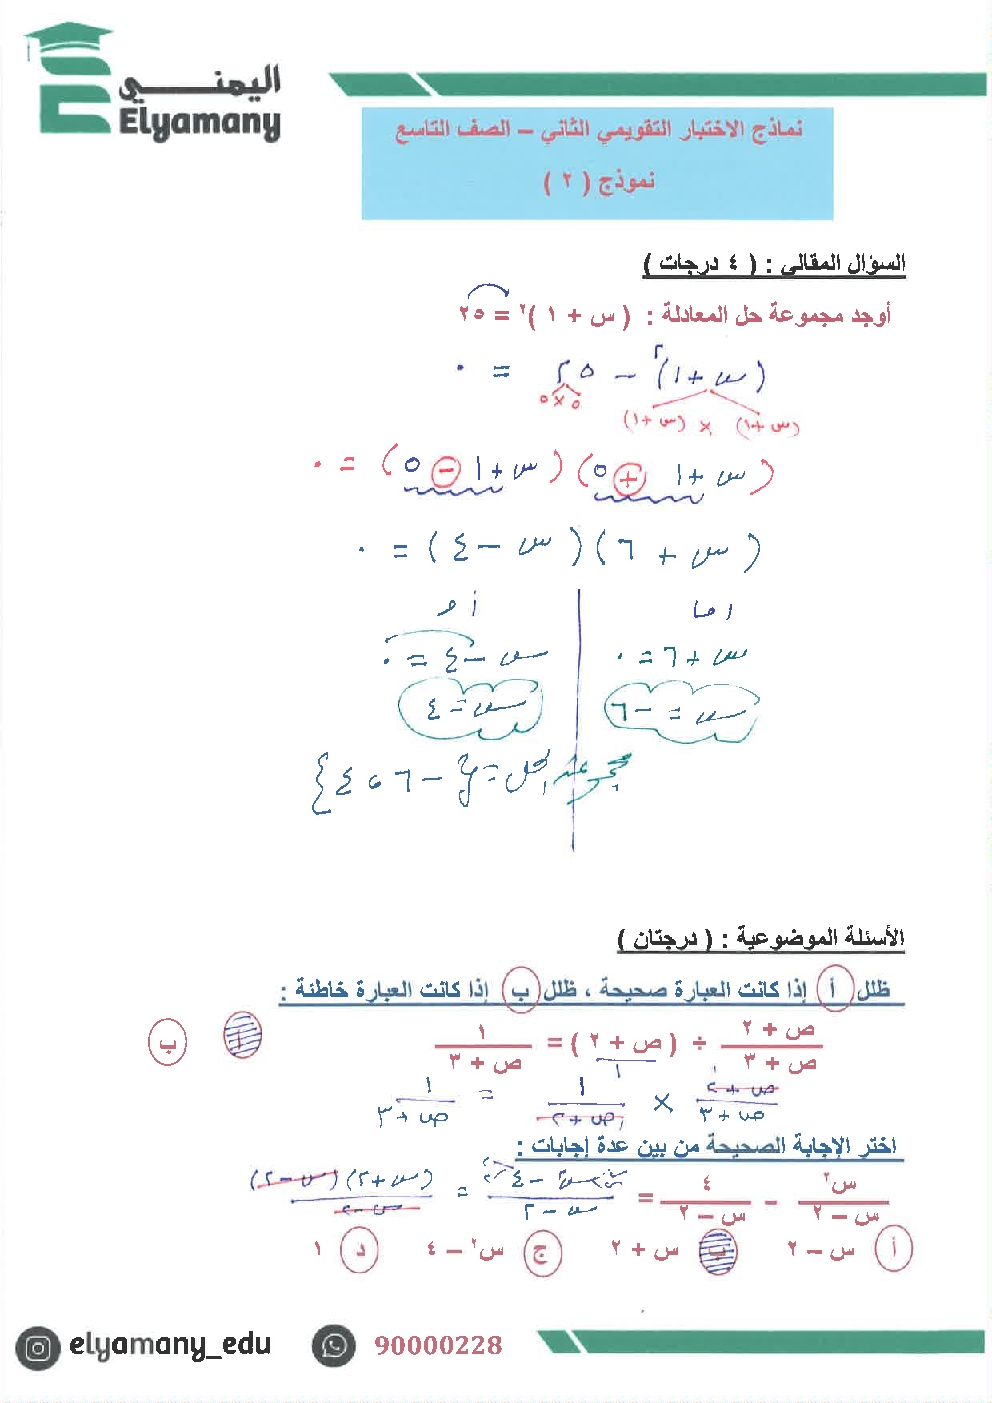 اليمني
Elyamany
نماذج الاختبار التقويمي الثاني – الصف التاسع
نموذج ( ٢ )
السؤال المقالي : ( ٤ درجات )
أوجد مجموعة حل المعادلة : ( س + ١ )² = ٢٥
(س + ١)² – ٢٥ = ٠
(س + ١) × (س + ١) ٥ × ٥
(س + ١ + ٥) (س + ١ – ٥) = ٠
(س + ٦) (س – ٤) = ٠
اما أو
س + ٦ = ٠ س – ٤ = ٠
س = – ٦ س = ٤
مجموعة الحل = { – ٦ ، ٤ }
الأسئلة الموضوعية : ( درجتان )
ظلل أ إذا كانت العبارة صحيحة ، ظلل ب إذا كانت العبارة خاطئة :
(ص + ٢)/(ص + ٣) ÷ ( ص + ٢ ) = ١/(ص + ٣) أ ب
(ص + ٢)/(ص + ٣) × ١/(ص + ٢) = ١/(ص + ٣)
اختر الإجابة الصحيحة من بين عدة إجابات :
س²/(س – ٢) - ٤/(س – ٢) = (س² – ٤)/(س – ٢) = (س + ٢)(س – ٢)/(س – ٢)
أ س – ٢ ب س + ٢ ج س² – ٤ د ١
elyamany_edu 90000228